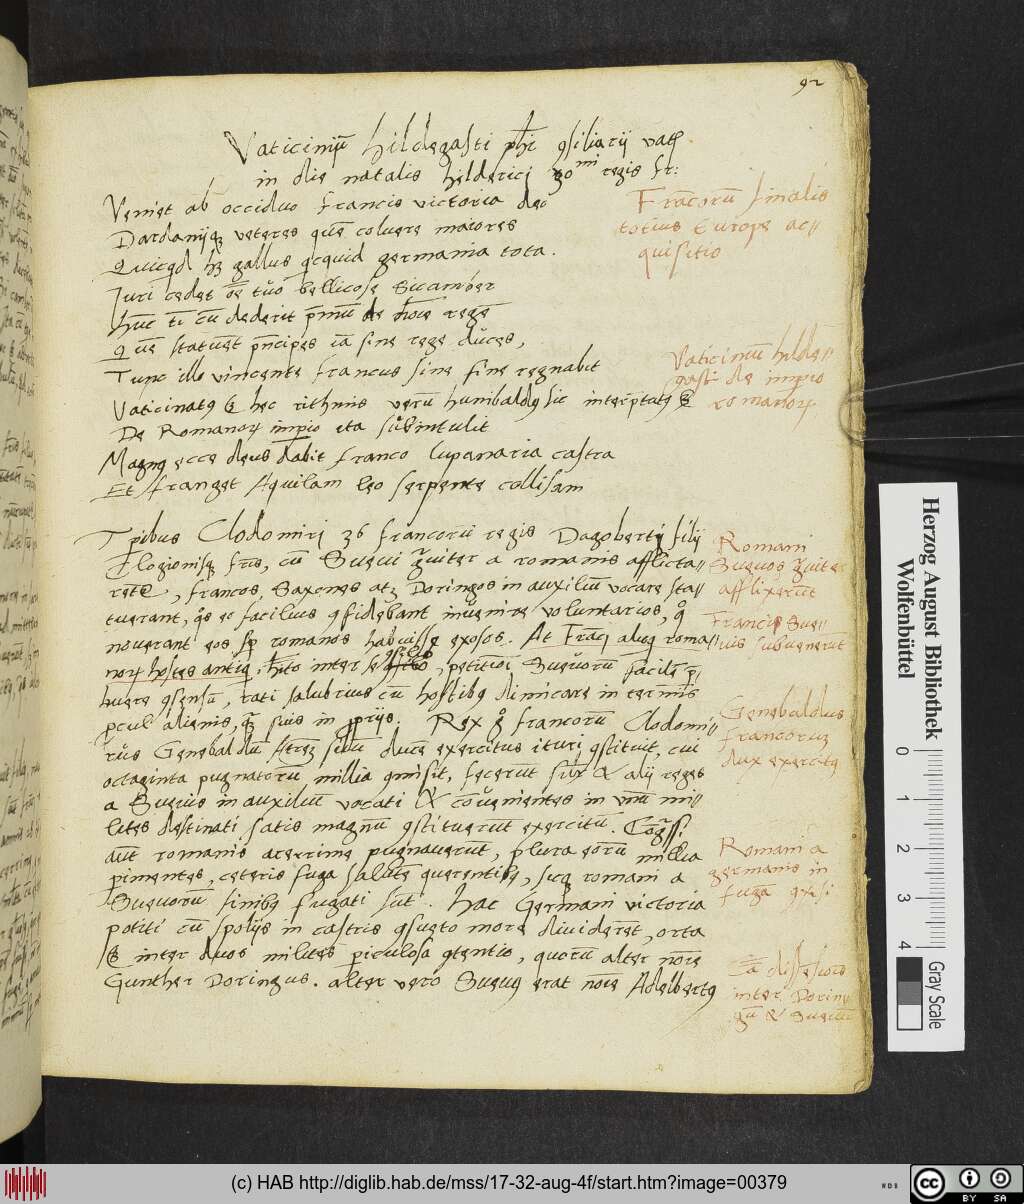 92
Vaticiniū Hildegasti phi ɔsiliarij vatꝭ
in die natalis helderici 30mi regis fr:
Veniet ab occiduo francis victoria dec
Dardaniiqꝫ veteres quē coluere maiores
Quicqd hꝫ gallus qcquid germania tota.
Iuri cedet oē tuo bellicose sicamber
Hūc tī cū dederit pmū de noīe regē
Quē statuēt pncipes iā sine rege duces,
Tunc illo vincente francus sine fine regnabit
Vaticinatꝰ ē hec rithmis verū hunibaldꝰ sic interptatꝰ ē
De Romanoꝝ impio ita subintulit
Magnꝰ ecce deus dabit franco lupanaria castra
Et franget Aquilam leo serpente collisam
Tpibus Clodomiri 36 francorū regis Dagoberti filij
Clogionisqꝫ frīs, cū Suevi gviter a romanis afflicta-
rēte, francos, Saxones atꝫ Doringos in auxiliū vocare sta-
tuerant, qͦs eo facilius ɔfidebant invenire voluntarios, qͦ
noverant eos sp romanos habuisse exosos. At Franci aliqꝫ roma-
noꝝ hostes antiq, hīto inter se ɔsilio, petitioī Suevorū facilē p-
buere ɔsensū, rati salubrius cū hostibꝰ dimicare in terminis
pcul alienis, qͣ suis in pprijs. Rex gͦ francorū Clodomi-
rus Genebaldū fratrē suū ducē exercitus ituri ɔstituit, cui
octaginta pugnatorū millia ɔmisit, fecerūt sil̄r & alij reges
a Suevis in auxiliū vocati & cōvenientes in vnū mi-
lites destinati satis magnū ɔstituerūt exercitū. Cōgssi
aūt romanis acerrime pugnaverūt, plura eorū millia
pimentes, ceteris fuga salutē querentibꝰ, sicqꝫ romani a
Suevorū finibꝰ fugati sūt. Hac Germani victoria
potiti cū spolijs in castris ɔsueto more dividerēt, orta
ē inter duos milites piculosa ɔtentio, quorū alter noīe
Gunther Doringus. alter vero Suevꝰ erat noīe Adelbertꝰ
Frācorū finalis
totius Europe ac-
quisitio
Vaticiniū hilde-
gasti de impio
romanoꝝ
Romani
Suevos gviter
afflixerūt
Francis Sue-
vis subvenerūt
Genebaldus
francorum
dux exercitꝰ
Romani a
germanis in
fugā ɔvsi
Cā dissēsiōis
inter Dorin-
gū & Suevū
Herzog August Bibliothek
Wolfenbüttel
0 1 2 3 4
Gray Scale
(c) HAB http://diglib.hab.de/mss/17-32-aug-4f/start.htm?image=00379
WDB
cc
BY SA